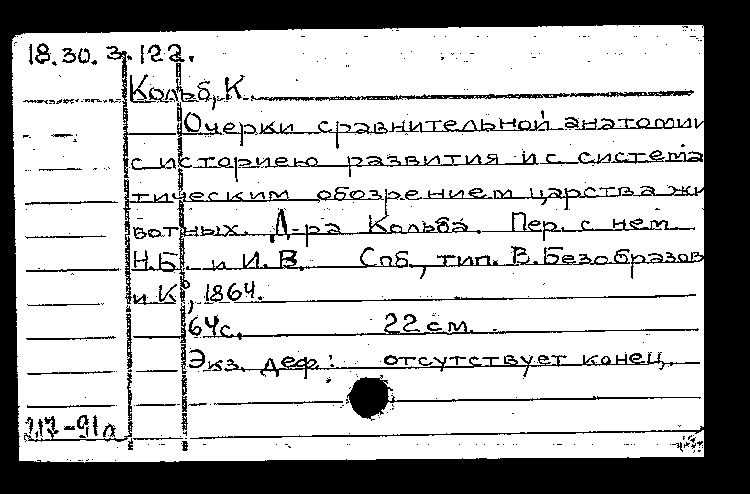 18.30.3.122.
Кольб, К.
Очерки сравнительной анатомии
с историею развития и с система
тическим обозрением царства жи
вотных. Д-ра Кольба. Пер. с нем.
Н.Б. и И.В. Спб., тип. В.Безобразов
и К°, 1864.
64с. 22 см.
Экз. деф.: отсутствует конец.
217-91а